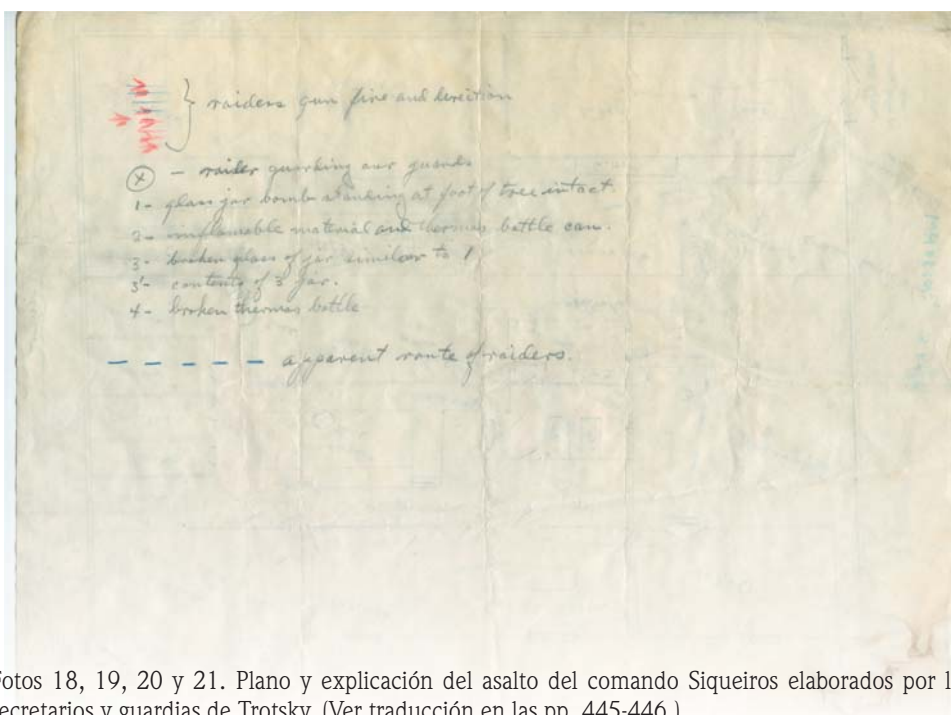 } raiders gun fire and direction
(x) - raider guarding our guards
1- glass jar bomb standing at foot of tree intact.
2- inflamable material and thermos bottle can.
3- broken glass of jar similar to 1
3'- contents of 3 jar.
4- broken thermos bottle
– – – – – apparent route of raiders.
Fotos 18, 19, 20 y 21. Plano y explicación del asalto del comando Siqueiros elaborados por l
secretarios y guardias de Trotsky. (Ver traducción en las pp. 445-446.)